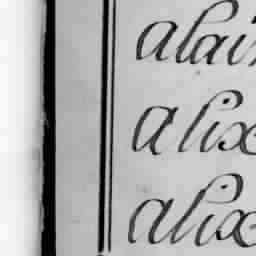 alai
alix
alix